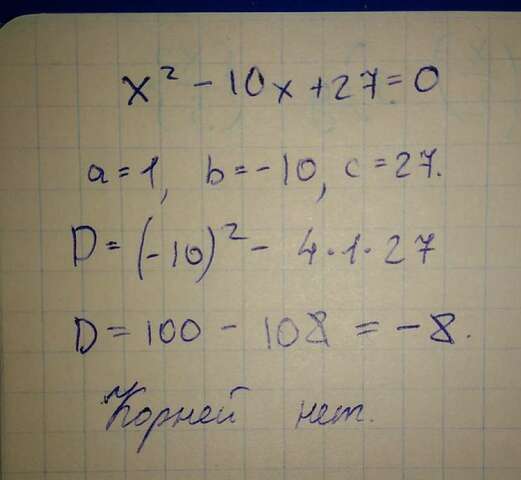 x² - 10x + 27 = 0
a = 1, b = -10, c = 27.
D = (-10)² - 4·1·27
D = 100 - 108 = -8.
Корней нет.